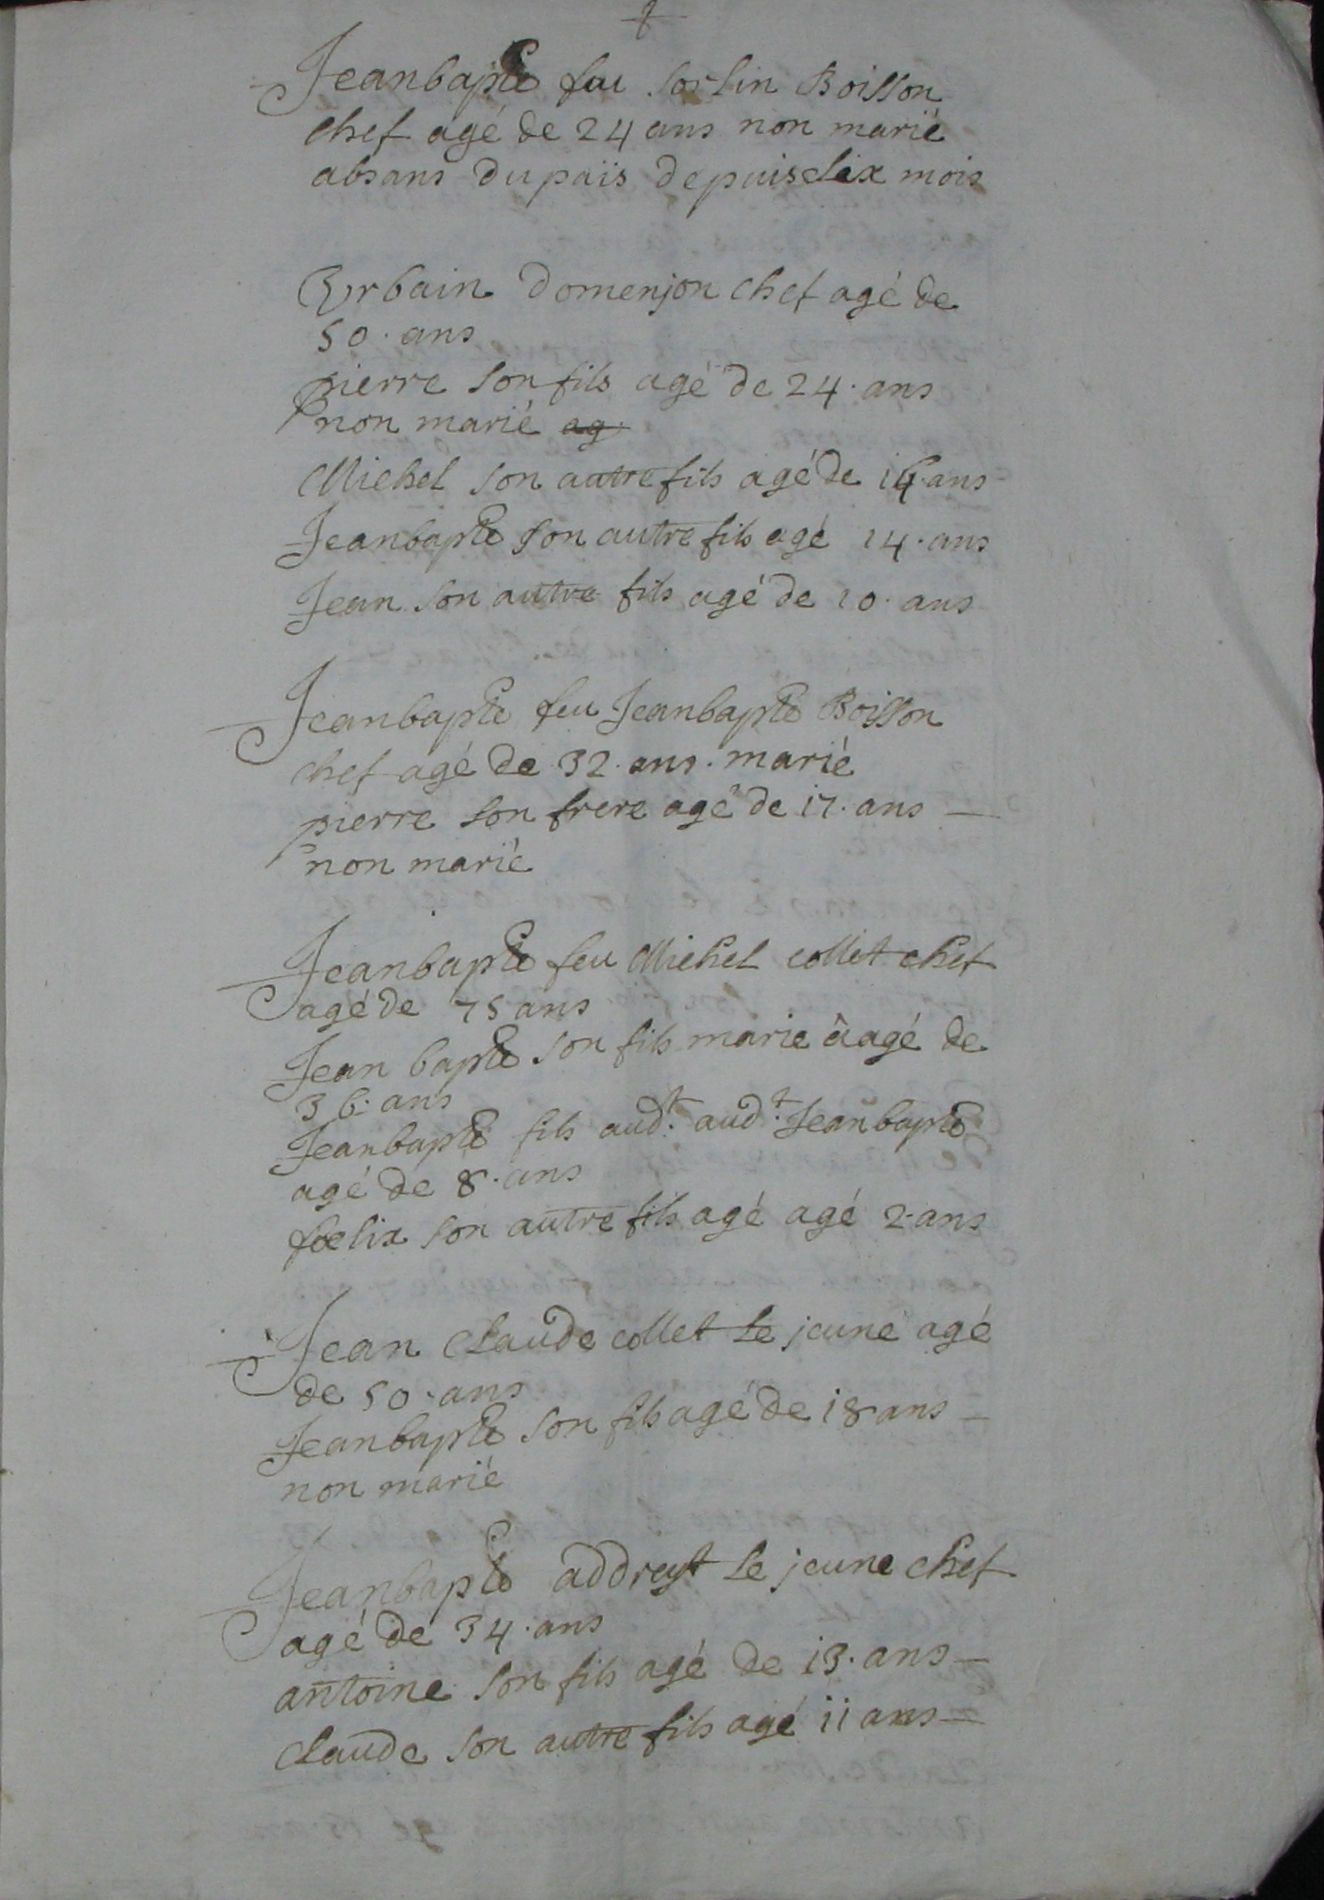 Jeanbapte feu sorlin Boisson
chef agé de 24 ans non marié
absans du païs depuis six mois
Urbain domenjon chef agé de
50. ans
pierre son fils agé de 24. ans
non marié ag
Michel son autre fils agé de ans
Jeanbapte son autre fils agé 14. ans
Jean son autre fils agé de 10. ans
Jeanbapte feu Jeanbapte Boisson
chef agé de 32. ans. marié
pierre son frere agé de 17. ans —
non marié
Jeanbapte feu Michel collet chef
agé de 75 ans
Jean bapte son fils marie âagé de
36. ans
Jeanbapte fils audt. audt. Jeanbapte
agé de 8. ans
foelix son autre fils agé agé 2. ans
Jean Claude collet le jeune agé
de 50. ans
Jeanbapte son fils agé de 18 ans —
non marié
Jeanbapte addreyt le jeune chef
agé de 34. ans
antoine son fils agé de 13. ans —
Claude son autre fils agé 11 ans —